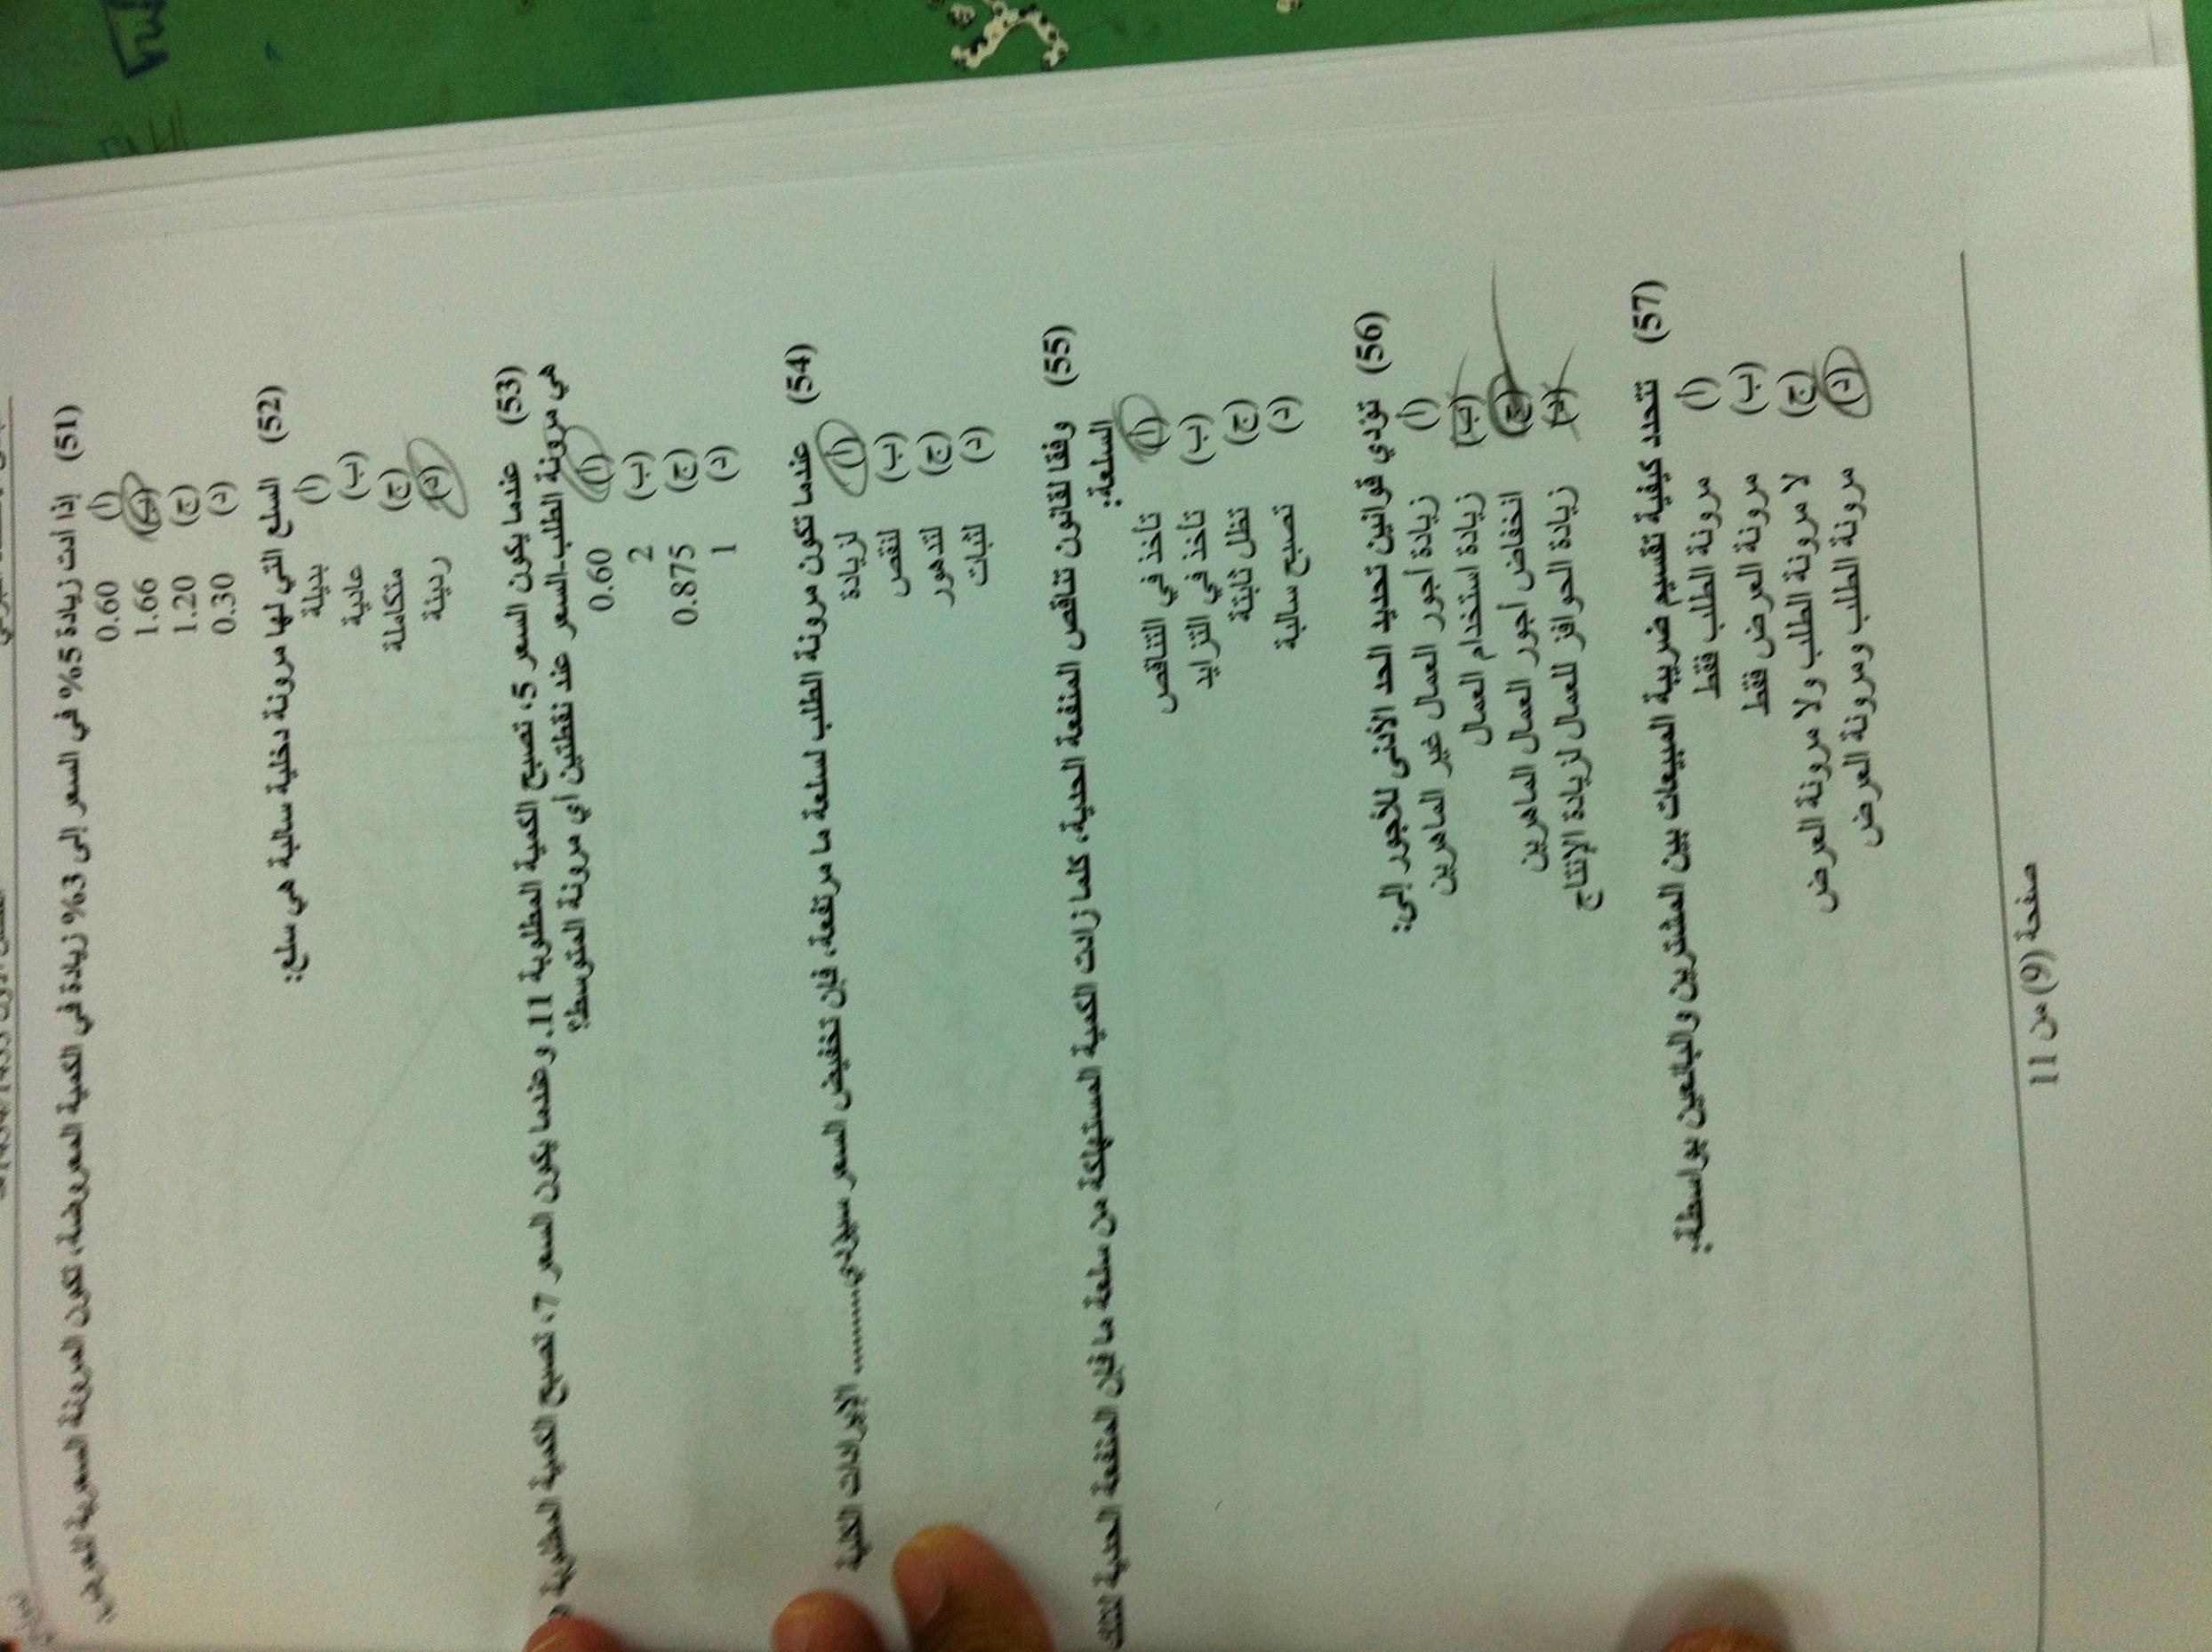 (51) إذا أدت زيادة 5% في السعر إلى 3% زيادة في الكمية المعروضة، تكون المرونة السعرية للعرض:
(أ) 0.60
(ب) 1.66
(ج) 1.20
(د) 0.30
(52) السلع التي لها مرونة دخلية سالبة هي سلع:
(أ) بديلة
(ب) عادية
(ج) متكاملة
(د) رديئة
(53) عندما يكون السعر 5، تصبح الكمية المطلوبة 11. وعندما يكون السعر 7، تصبح الكمية المطلوبة
هي مرونة الطلب-السعر عند نقطتين أي مرونة المتوسط؟
(أ) 0.60
(ب) 2
(ج) 0.875
(د) 1
(54) عندما تكون مرونة الطلب لسلعة ما مرتفعة، فإن تخفيض السعر سيؤدي............ الإيرادات الكلية
(أ) لزيادة
(ب) لنقص
(ج) لتدهور
(د) لثبات
(55) وفقا لقانون تناقص المنفعة الحدية، كلما زادت الكمية المستهلكة من سلعة ما فإن المنفعة الحدية لتلك
السلعة:
(أ) تأخذ في التناقص
(ب) تأخذ في التزايد
(ج) تظل ثابتة
(د) تصبح سالبة
(56) تؤدي قوانين تحديد الحد الأدنى للأجور إلى:
(أ) زيادة أجور العمال غير الماهرين
(ب) زيادة استخدام العمال
(ج) انخفاض أجور العمال الماهرين
(د) زيادة الحوافز للعمال لزيادة الإنتاج
(57) تتحدد كيفية تقسيم ضريبة المبيعات بين المشترين والبائعين بواسطة:
(أ) مرونة الطلب فقط
(ب) مرونة العرض فقط
(ج) لا مرونة الطلب ولا مرونة العرض
(د) مرونة الطلب ومرونة العرض
صفحة (9) من 11